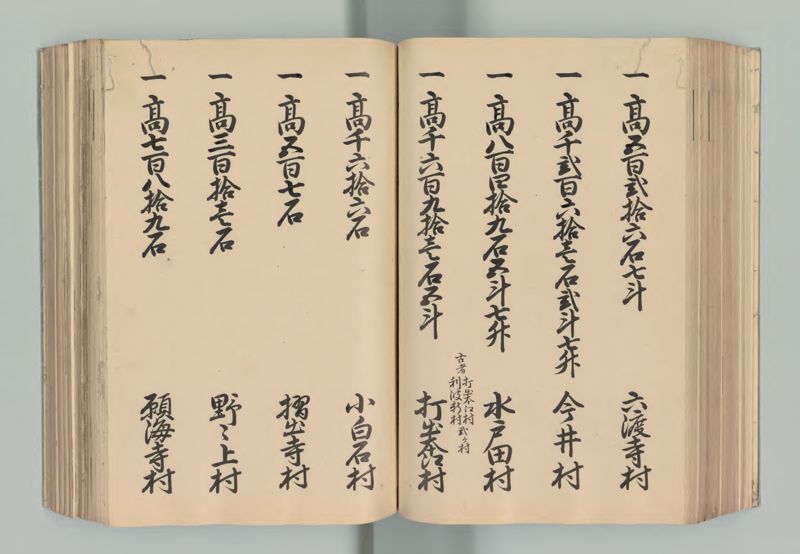 一 高五百弐拾六石七斗 六渡寺村
一 高千弐百六拾壱石弐斗七升 今井村
一 高八百四拾九石五斗七升 水戸田村
古者 打出本江村
利波新村 弐ケ村
一 高千六百九拾壱石五斗 打出本江村
一 高千六拾六石 小白石村
一 高五百七石 摺出寺村
一 高三百拾壱石 野々上村
一 高七百八拾九石 願海寺村